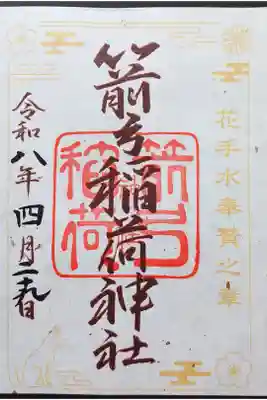 花手水奉賛之章
箭弓稲荷神社
箭弓
稲荷
令和八年四月日